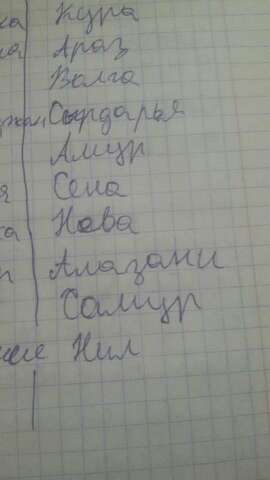 ка Кура
Араз
Волга
Сырдарья
Амур
я Сена
ка Нева
Алазани
Самур
Нил